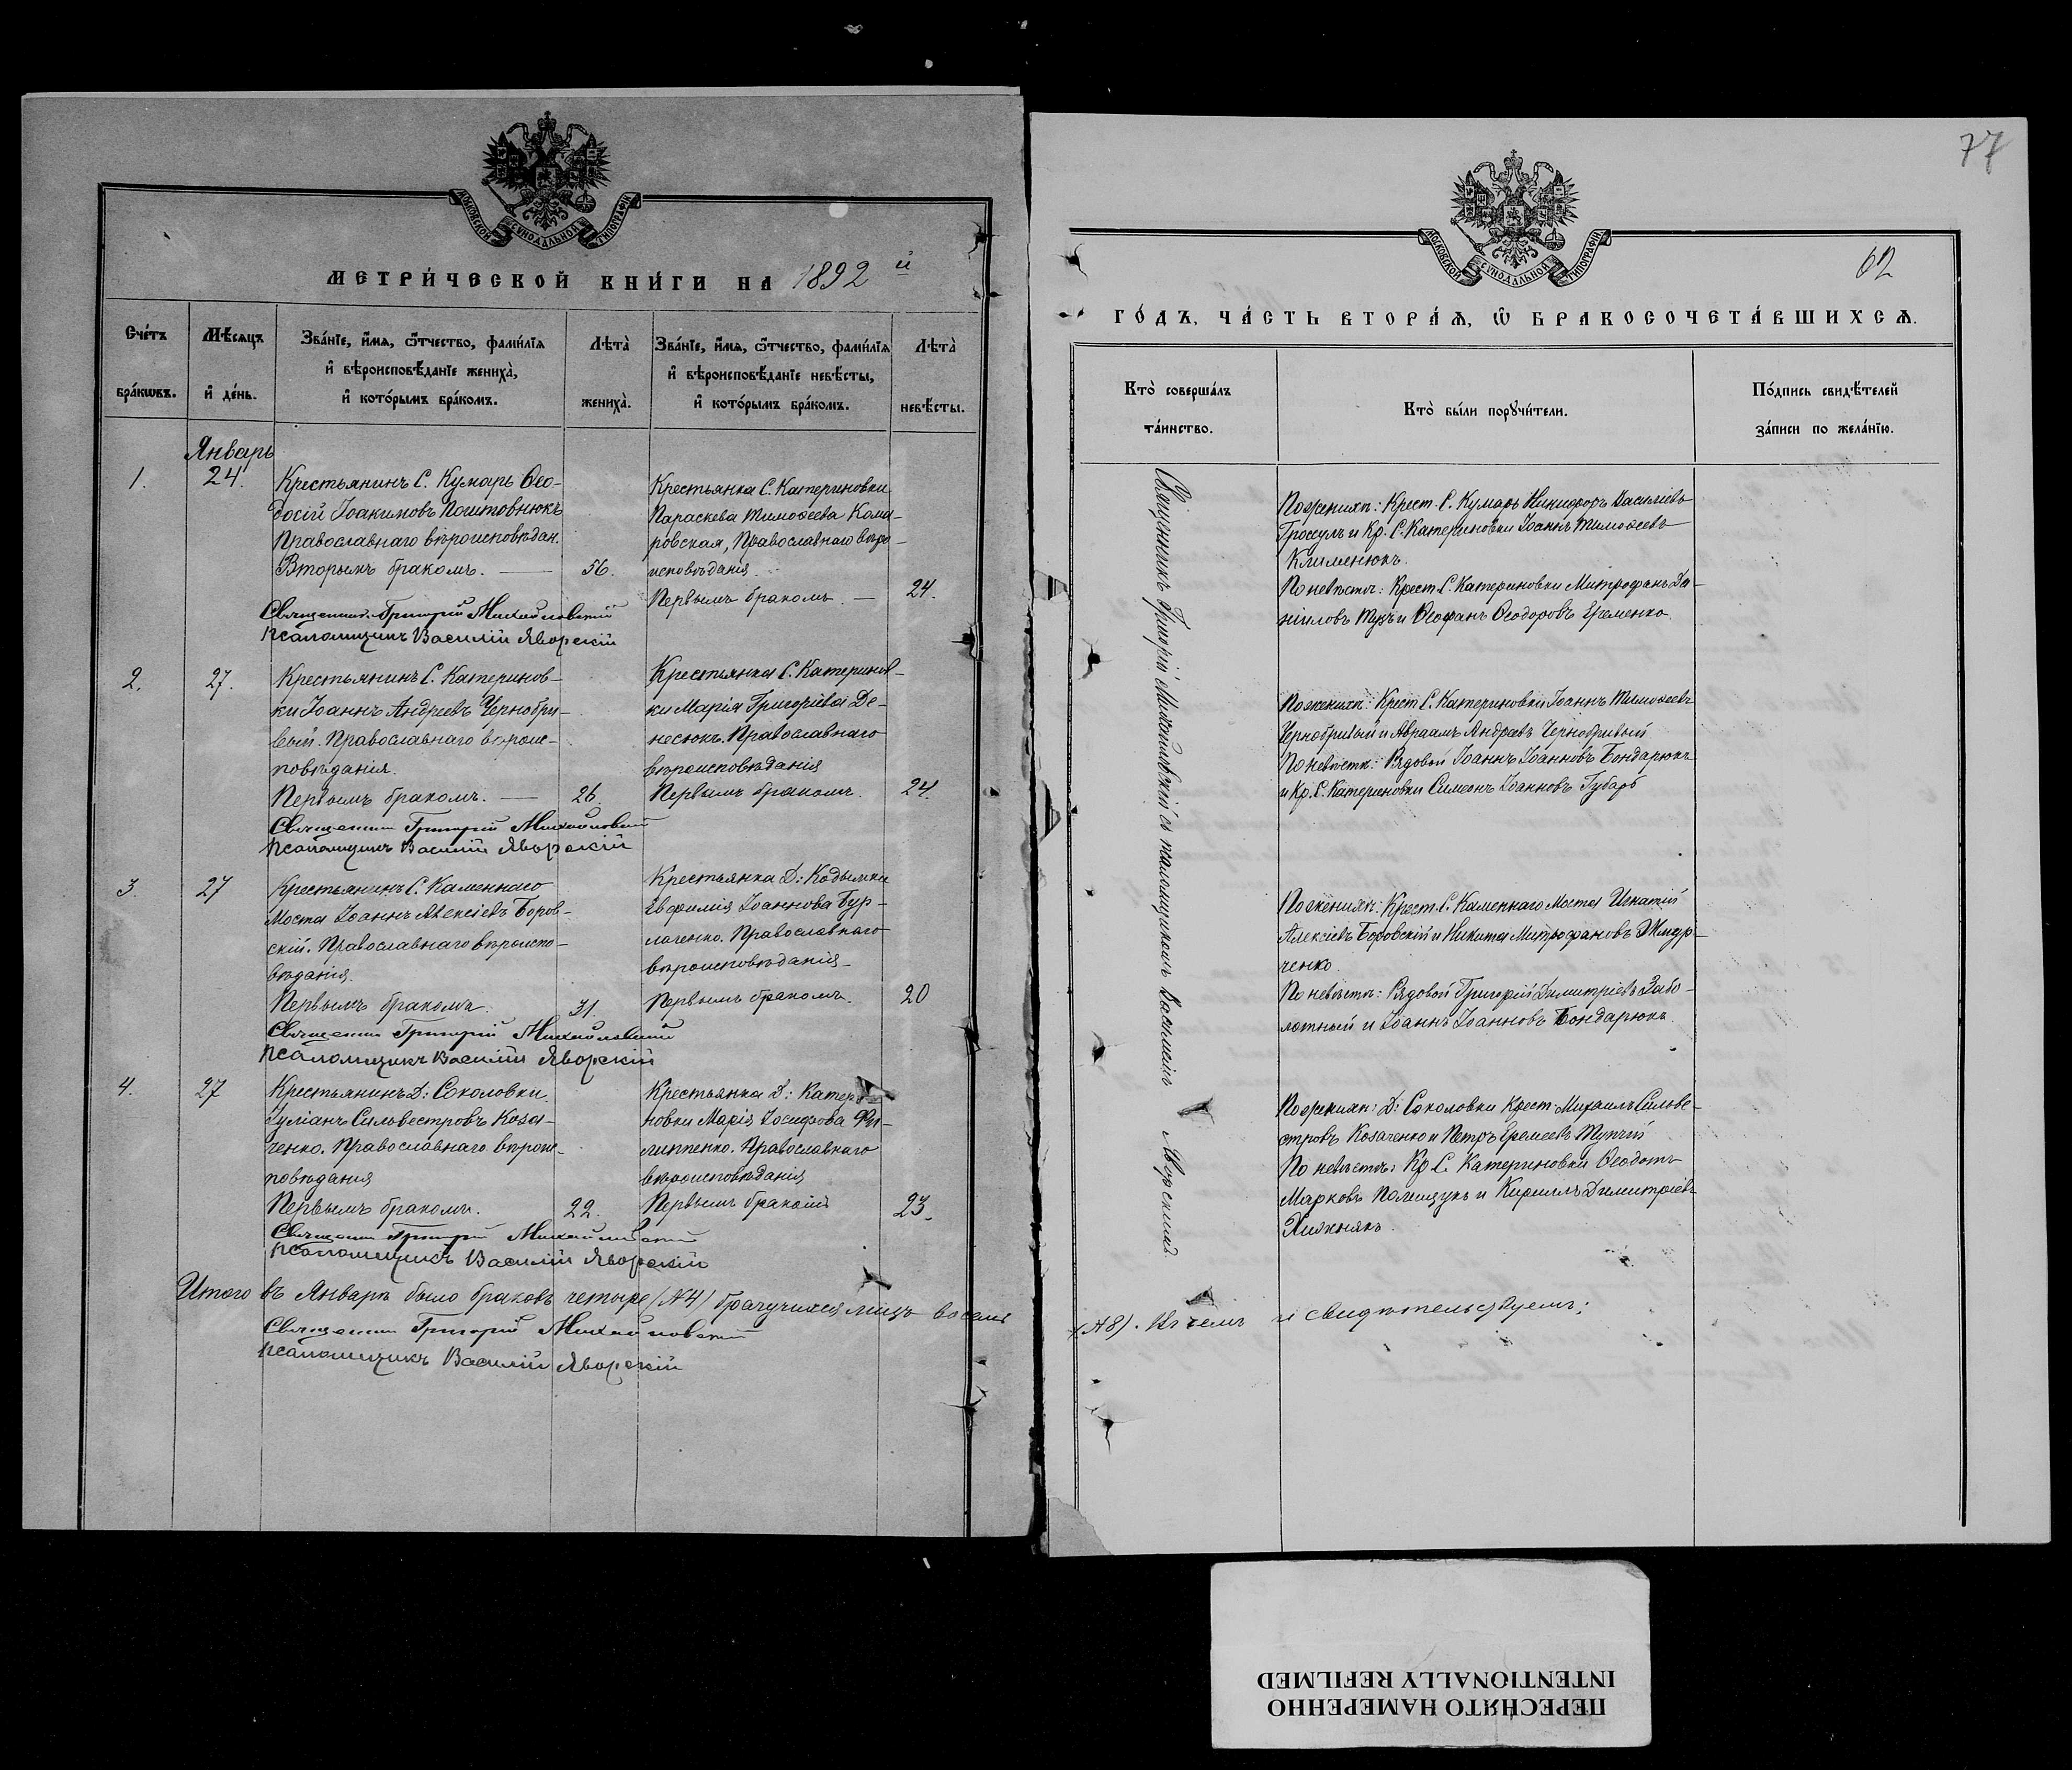 МОСКОВСКОЙ СѴНОДАЛЬНОЙ ТИПОГРАФІИ
МЕТРИ́ЧЕСКОЙ КНИ́ГИ НА 1892 й
Сче́тъ
бра́кѡвъ.
Мѣ́сяцъ
и҆ де́нь.
Зва́нїе, и҆́мѧ, ѻ҆́тчество, фами́лїѧ
и҆ вѣроисповѣ́данїе жениха̀,
и҆ кото́рымъ бра́комъ.
Лѣта̀
жениха̀.
Зва́нїе, и҆́мѧ, ѻ҆́тчество, фами́лїѧ
и҆ вѣроисповѣ́данїе невѣ́сты,
и҆ кото́рымъ бра́комъ.
Лѣта̀
невѣ́сты.
Январь
1.
24.
Крестьянинъ С. Кумарь Ѳео-
досій Іоакимовъ Поштовнюкъ
Православнаго вѣроисповѣдан.
Вторымъ бракомъ. —
56.
Крестьянка С. Катериновки
Параскева Тимоѳеева Кома-
ровская, Православнаго вѣро-
исповѣданія
Первымъ бракомъ. —
24.
Священник Григорій Михайловскій
Псаломщикъ Василій Яворскій
2.
27.
Крестьянинъ С. Катеринов-
ки Іоаннъ Андреевъ Чернобри-
вый. Православнаго вѣроис-
повѣданія.
Первымъ бракомъ. —
26.
Крестьянка С. Катеринов-
ки Марія Григоріева Де-
несюкъ. Православнаго
вѣроисповѣданія
Первымъ бракомъ.
24.
Священник Григорій Михайловский
Псаломщикъ Василій Яворскій
3.
27
Крестьянинъ С. Каменнаго
Моста Іоаннъ Алексіевъ Боров-
скій. Православнаго вѣроиспо-
вѣданія.
Первымъ бракомъ.
31.
Крестьянка Д: Кодымки
Евфимія Іоаннова Бур-
лаченко. Православнаго
вѣроисповѣданія
Первымъ бракомъ.
20
Священник Григорій Михайловский
Псаломщикъ Василій Яворскій
4.
27
Крестьянинъ Д: Соколовки
Іуліанъ Сильвестровъ Коза-
ченко. Православнаго вѣроис-
повѣдания
Первымъ бракомъ.
22.
Крестьянка Д: Катери-
новки Марія Іосифова Фи-
липпенко. Православнаго
вѣроисповѣданія
Первымъ бракомъ
23.
Священник Григорій Михайловский
Псаломщикъ Василій Яворскій
Итого въ Январѣ было браковъ четыре (№4) брачущихся лицъ восемь
Священник Григорій Михайловский
Псаломщикъ Василій Яворскій
77
62
МОСКОВСКОЙ СѴНОДАЛЬНОЙ ТИПОГРАФІИ
ГО́ДЪ, ЧА́СТЬ ВТОРА́Ѧ, Ѡ҆ БРАКОСОЧЕТА́ВШИХСѦ.
Кто̀ соверша́лъ
та́инство.
Кто̀ бы́ли порꙋчи́тели.
По́дпись свидѣ́телей
за́писи по жела́нїю.
Священникъ Григорій Михайловскій съ псаломщикомъ Василіемъ Яворскимъ
По женихѣ: Крест. С. Кумарь Никифоръ Василіевъ
Гроссулъ и Кр. С. Катериновки Іоаннъ Тимоѳеевъ
Клименюкъ.
По невѣстѣ: Крест. С. Катериновки Митрофанъ Да-
ніиловъ Тукъ и Ѳеофанъ Ѳеодоровъ Еременко.
По женихѣ: Крест С. Катериновки Іоаннъ Тимоѳеевъ
Чернобривый и Авраамъ Андреевъ Чернобривый
По невѣстѣ: Рядовой Іоаннъ Іоанновъ Бондарюкъ
и Кр. С. Катериновки Симеонъ Іоанновъ Губарь
По женихѣ: Крест. С. Каменнаго Моста Игнатій
Алексіевъ Боровскій и Никита Митрофановъ Жмур-
ченко.
По невѣстѣ: Рядовой Григорій Димитріевъ Забо-
лотный и Іоаннъ Іоанновъ Бондарюкъ.
По женихѣ: Д: Соколовки Крест. Михаилъ Сильве-
стровъ Козаченко и Петръ Еремеевъ Тупчій
По невѣстѣ: Кр С. Катериновки Ѳеодотъ
Марковъ Полищукъ и Кириллъ Димитріевъ
Хижнякъ.
(№8). Въ чемъ и свидѣтельствуемъ:
ПЕРЕСНЯТО НАМЕРЕННО
INTENTIONALLY REFILMED